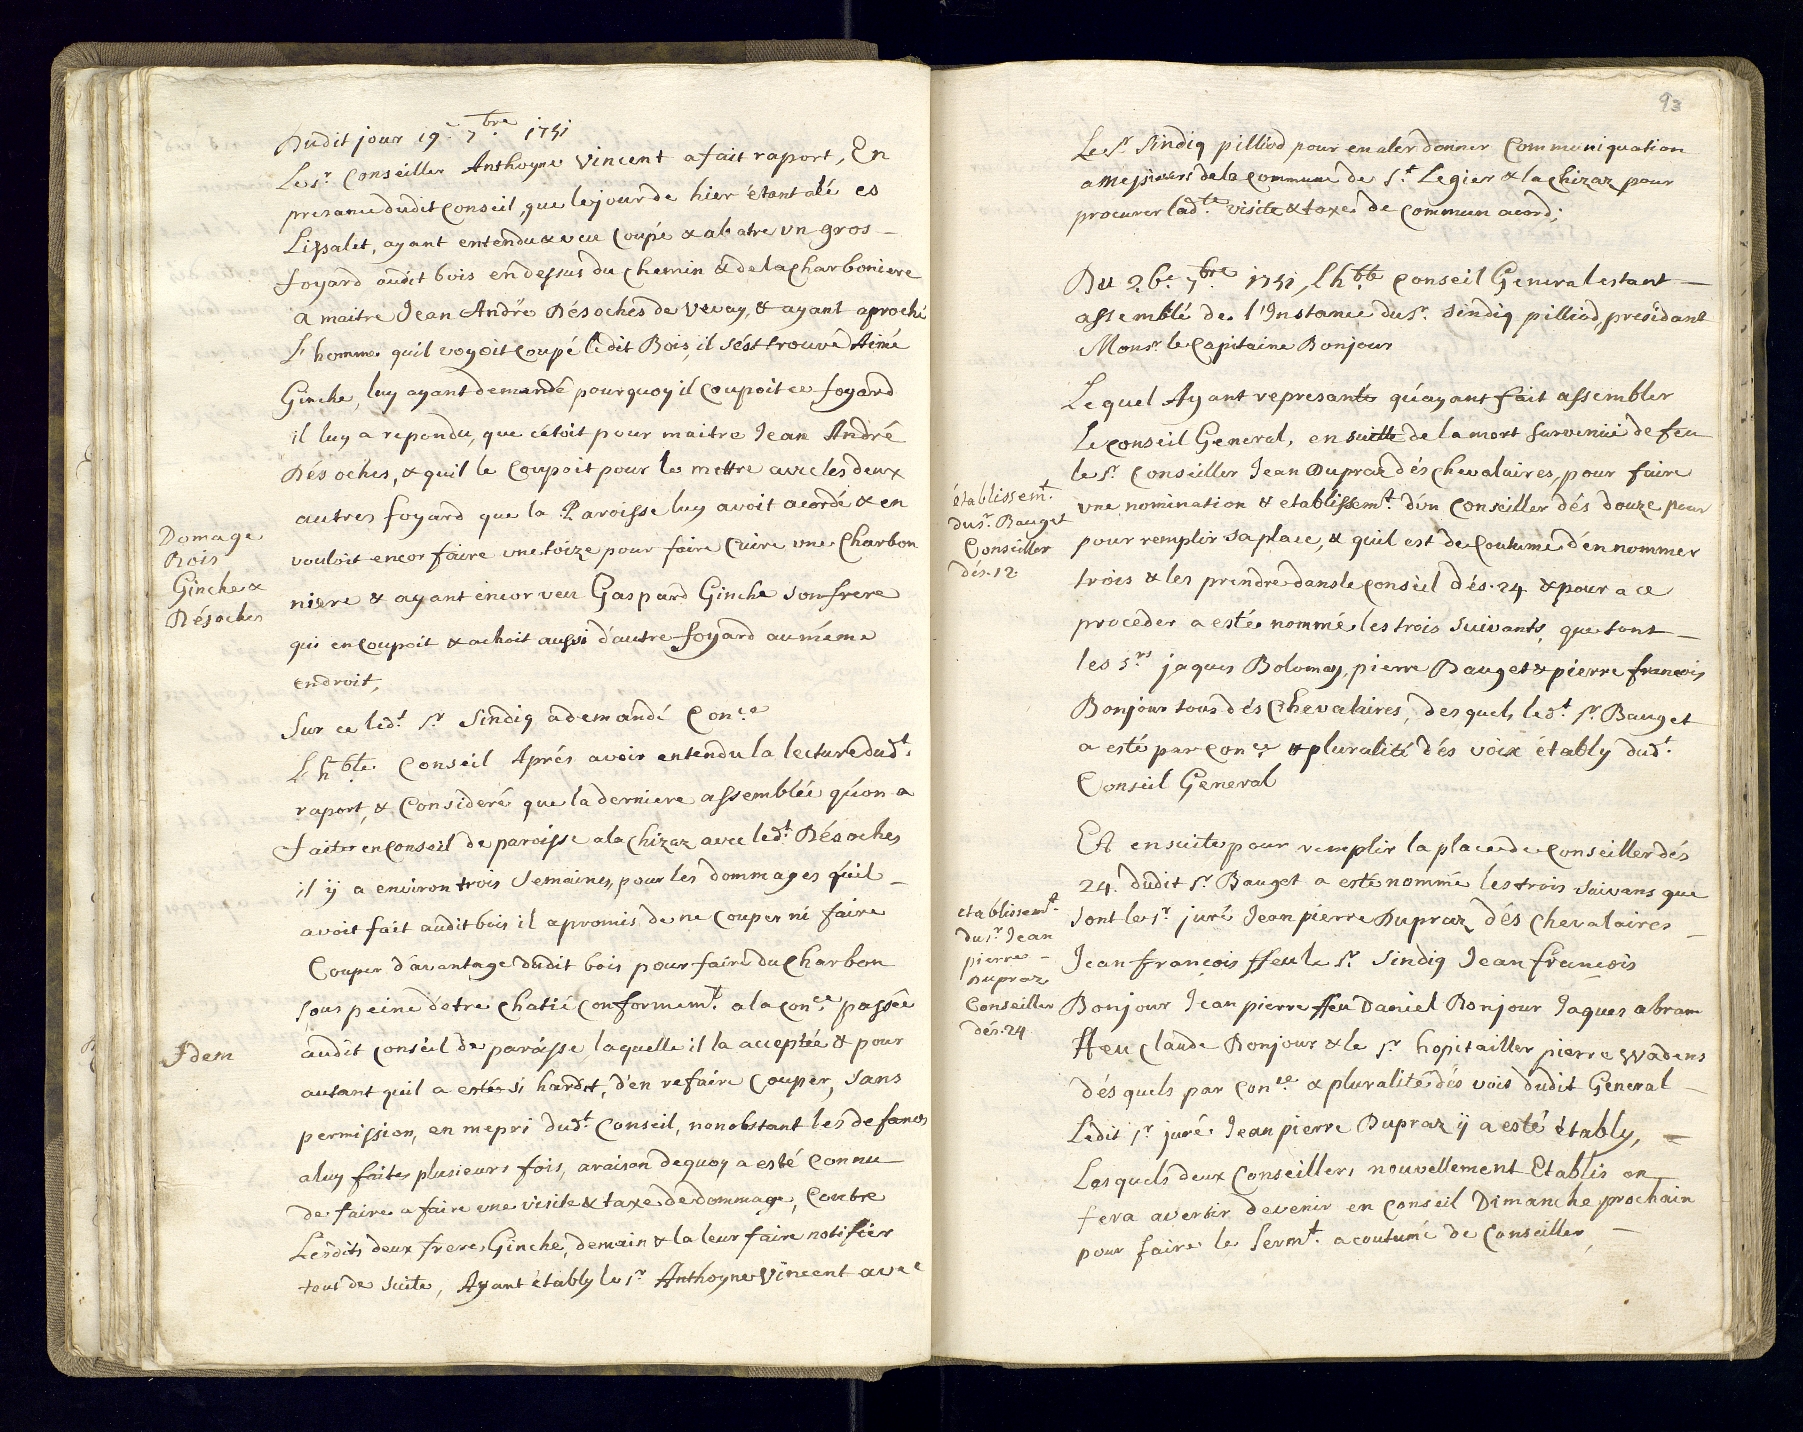 Dudit jour 19e. 7bre. 1751
Le sr. Conseiller Anthoyne Vincent a fait raport, En
presance dudit Conseil, que le jour de hier étant alé es
Lissalet, ayant entendu & veu Coupé & abatre vn gros
foyard audit bois en dessus du Chemin & de la Charboniere
a maitre Jean André Désoches de Vevay, & ayant aproché
L'homme quil voyoit Coupé ledit Bois, il s'ést trouvé Aimé
Ginche, luy ayant demandé pourquoy il Coupoit ce foyard
il luy a repondu, que c'étoit pour maitre Jean André
Désoches, & quil le Coupoit pour le mettre avec les deux
autres foyard que la Paroisse luy avoit acordé & en
vouloit encor faire une toize pour faire Cuire vne Charbon
niere & ayant encor veu Gaspard Ginche son frere
qui en Coupoit & achoit aussi d'autre foyard au même
endroit,
Domage
Bois
Ginche &
Désoches
Sur ce led.t sr. Sindiq a demandé Con.ce
L'h.ble Conseil Aprés avoir entendu la lecture dud.t
raport, & Consideré que la derniere assemblée qu'on a
faite en Conseil de paroisse a la Chizaz avec led.t Désoches
il ÿ a environ trois Semaines, pour les dommages qu'il
avoit fait audit bois il a promis de ne Couper ni faire
Couper d'avantage dudit bois pour faire du Charbon
sous peine d'etre Chatié Conformem.t a la Con.ce passée
audit Conseil de paroisse laquelle il la acceptée & pour
autant quil a estés si hardit, d'en refaire Couper, Sans
permission, en mepri dud.t Conseil, nonobstant les defances
a luy faites plusieurs fois, a raison dequoy a esté Connu
de faire a faire une visite & taxe de dommage, Contre
Lesdits deux freres Ginche, demain & la leur faire notifier
tout de Suite, Ayant étably le sr. Anthoyne Vincent avec
Idem
93
Le Sr. Sindiq pilliod pour en aler donner Communiquation
a Messieurs de la Commune de St. Legier & la Chizaz pour
procurer lad.te visite & taxe de Commun acord;
Du 26e. 7bre. 1751, L'h.ble Conseil General estant
assemblé de l'Instance du sr. Sindiq pilliod presidant
Monsr. le Capitaine Bonjour
Lequel Ayant represanté qu'ayant fait assembler
Le Conseil General, en suitte de la mort survenüe de feu
le sr. Conseiller Jean Dupraz dés Chevalaires, pour faire
vne nomination & etablissem.t d'vn Conseiller dés douze pour
pour remplir sa place, & quil est de Coutume d'en nommer
trois & les prendre dans le Conseil dés. 24 & pour a ce
proceder a esté nommé les trois suivants, que sont
les srs. jaques Bolomay, pierre Bauget & pierre francois
Bonjour tous dés Chevalaires, desquels led.t sr. Bauget
a esté par Con.ce & pluralité dés voix étably dud.t
Conseil General
établissem.t
du sr. Bauget
Conseiller
dés. 12
Et en suite pour remplir la place de Conseiller dés
24. dudit sr. Bauget a esté nommé les trois suivans que
sont le sr. juré Jean pierre Dupraz dés Chevalaires
Jean françois ffeu le sr. Sindiq Jean françois
Bonjour Jean pierre ffeu Daniel Bonjour Jaques abram
ffeu Claude Bonjour & le sr. hopitailler pierre Wadens
désquels par Con.ce & pluralité dés vois dudit General
Ledit sr. juré Jean pierre Dupraz ÿ a esté étably,
Lesquels deux Conseillers nouvellement Etablis on
fera avertir de venir en Conseil Dimanche prochain
pour faire le Serm.t acoutumé de Conseiller,
etablissem.t
du sr. Jean
pierre
Dupraz
Conseiller
dés. 24